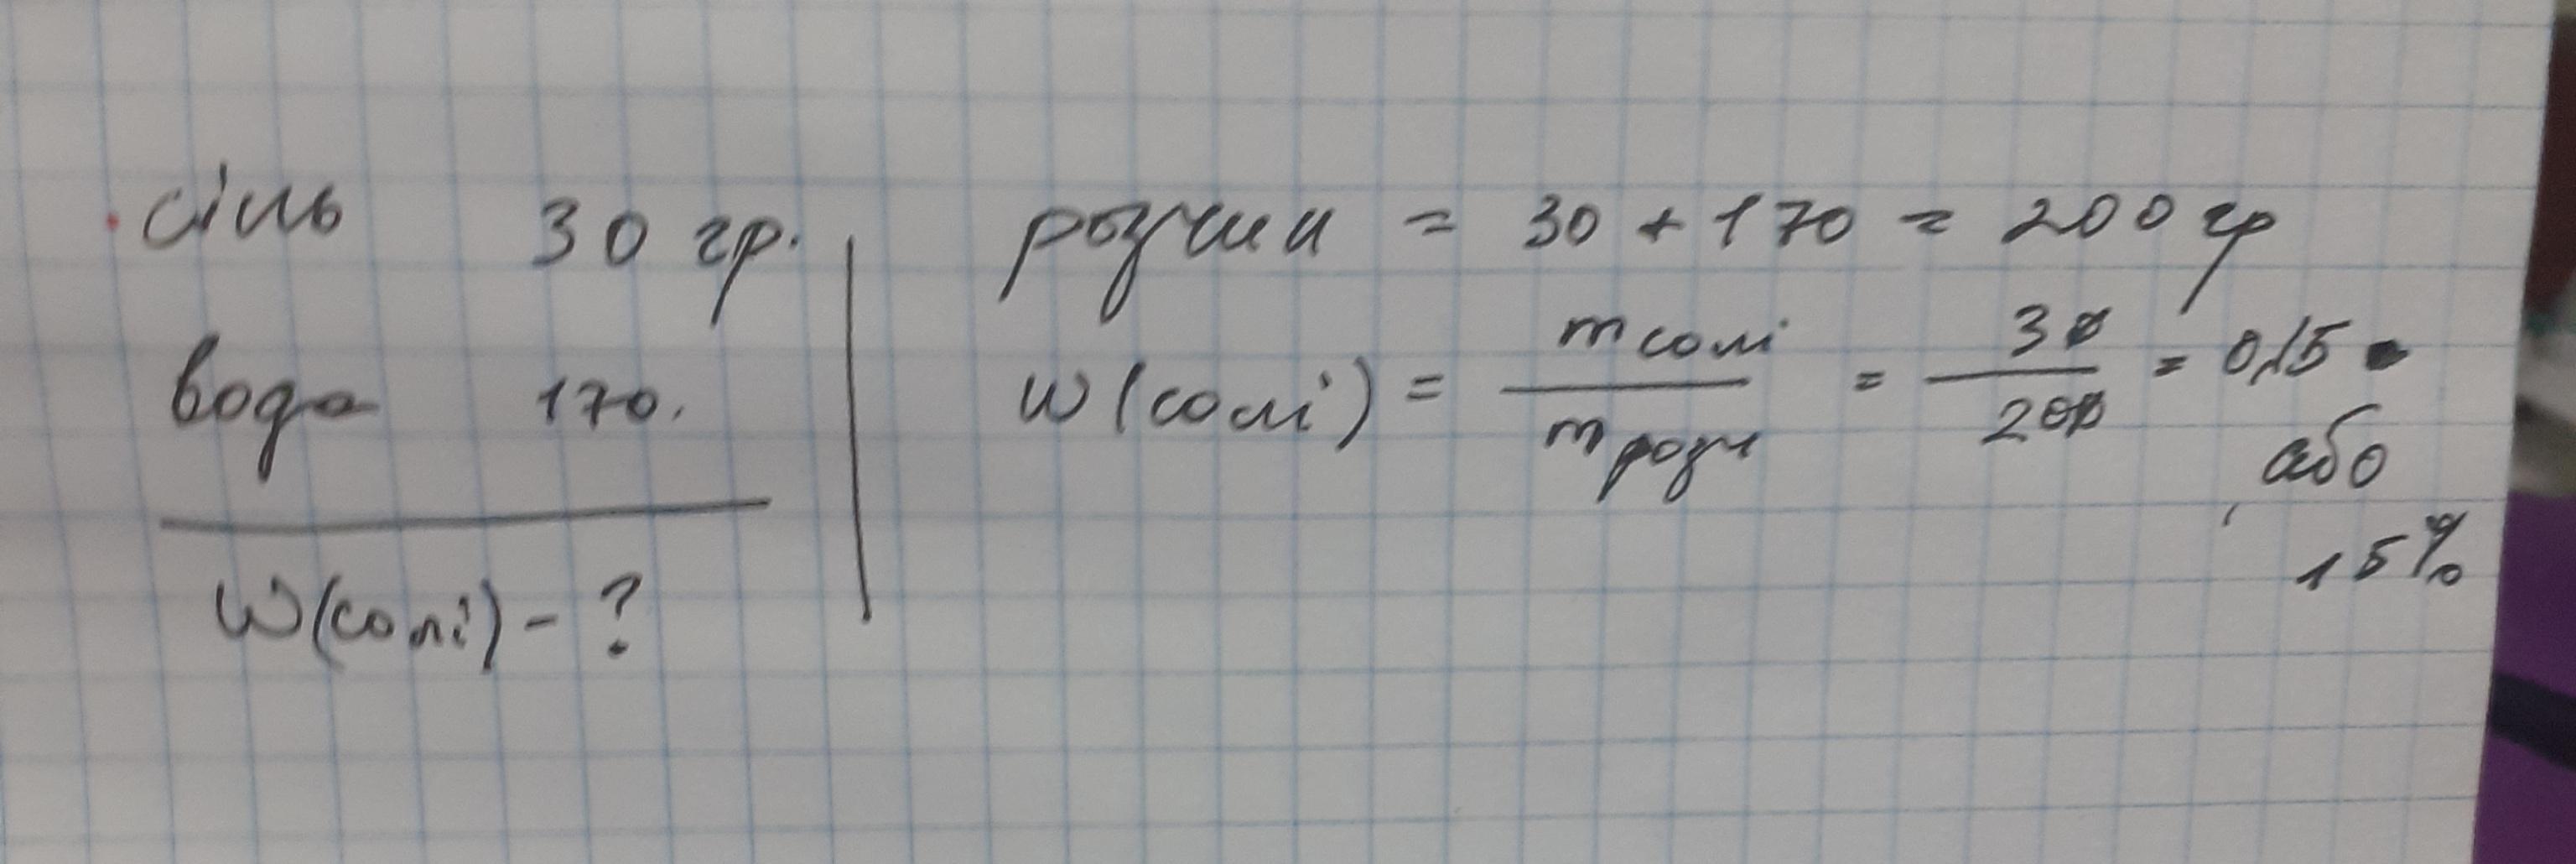 сіль 30 гр.
вода 170.
W(солі) - ?
розчин = 30 + 170 = 200 гр
W(солі) = m солі / m розч = 30 / 200 = 0,15
або
15%